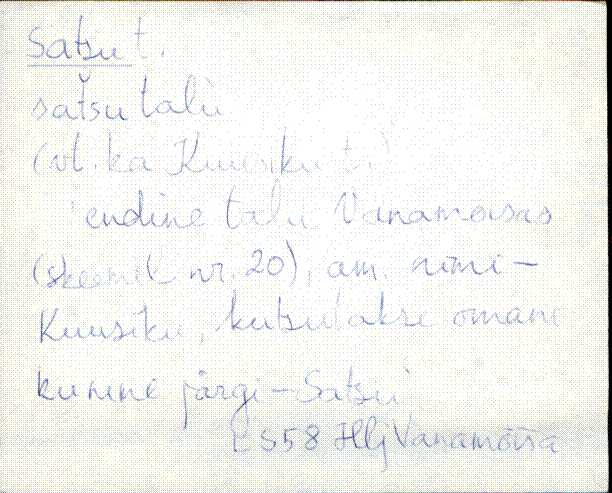 Satsu t.
satšu talu
(vt. ka Kuusiku t.)
endine talu Vanamõisas
(skeemil nr. 20), am. nimi –
Kuusiku, kutsutakse omani
kunime järgi – Satsu
1958 Vanamõisa